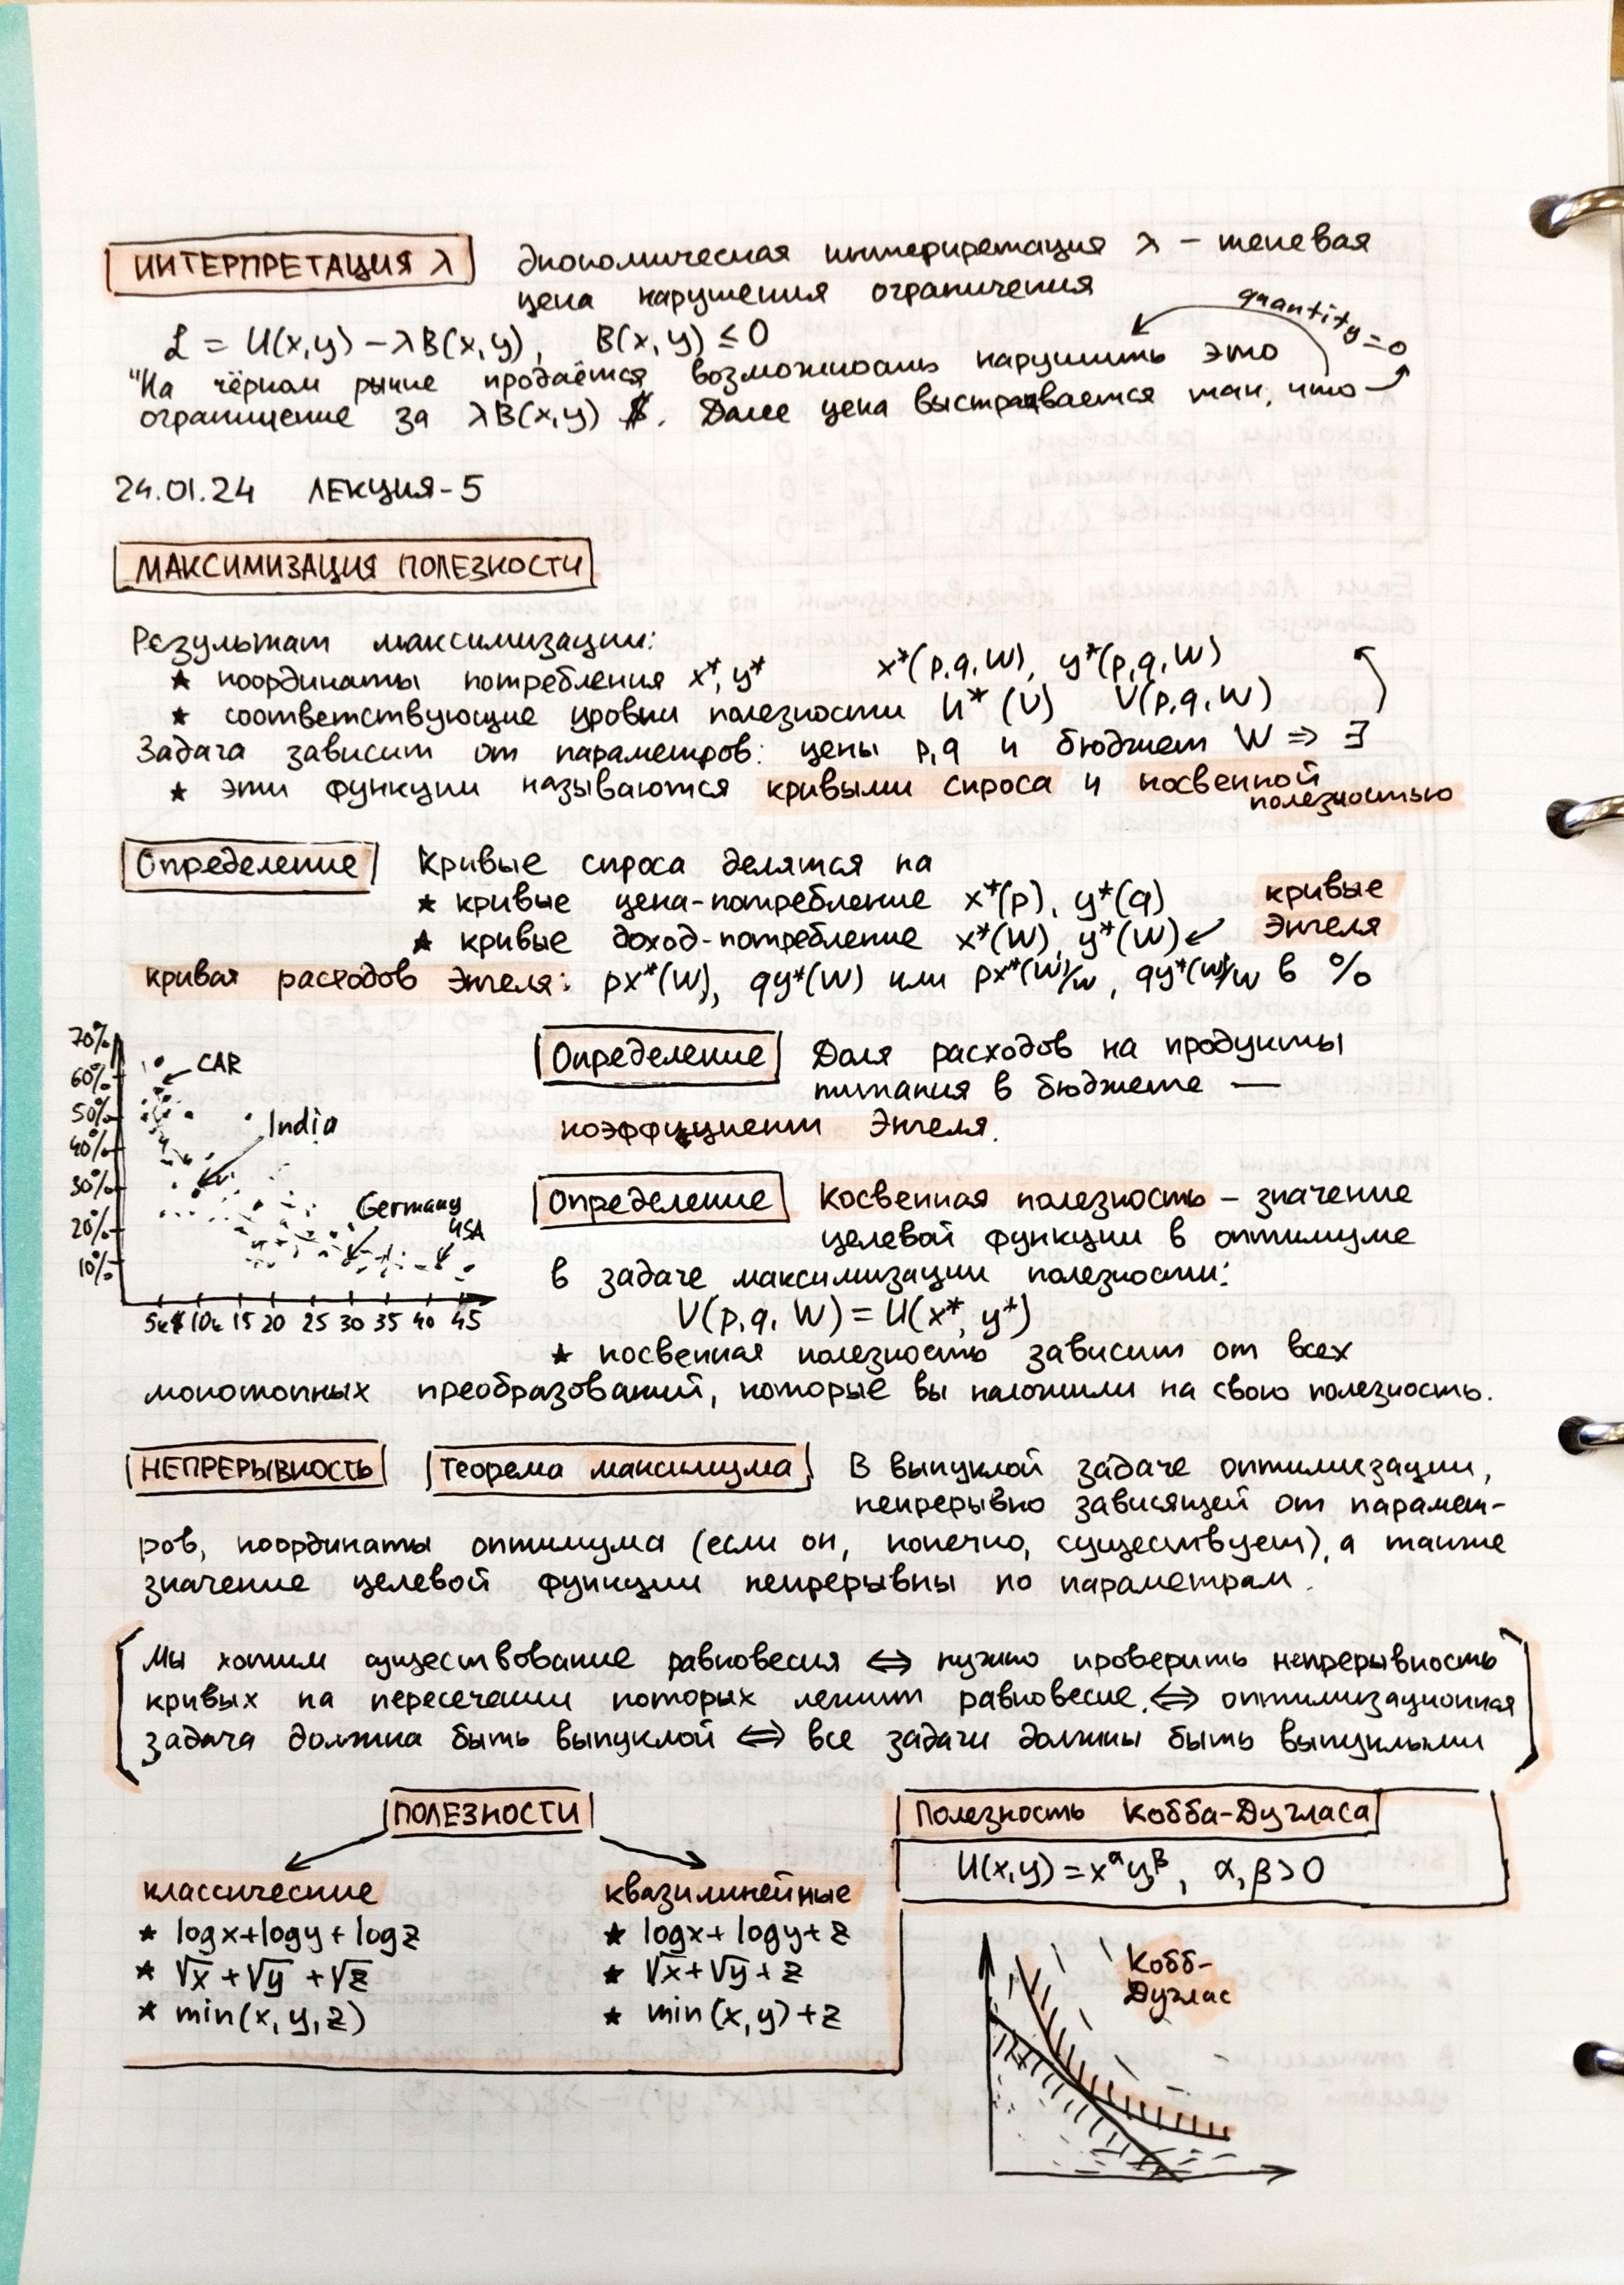 ИНТЕРПРЕТАЦИЯ λ экономическая интерпретация λ – теневая
цена нарушения ограничения
ℒ = U(x,y) – λB(x,y), B(x,y) ≤ 0
quantity = 0
"На чёрном рынке продаётся возможность нарушить это
ограничение за λB(x,y) $. Далее цена выстраивается так, что
24.01.24 ЛЕКЦИЯ-5
МАКСИМИЗАЦИЯ ПОЛЕЗНОСТИ
Результат максимизации:
★ координаты потребления x*, y* x*(p,q,W), y*(p,q,W)
★ соответствующие уровни полезности U* (V) V(p,q,W)
Задача зависит от параметров: цены p,q и бюджет W ⇒ ∃
★ эти функции называются кривыми спроса и косвенной
полезностью
Определение Кривые спроса делятся на
★ кривые цена-потребление x*(p), y*(q) кривые
★ кривые доход-потребление x*(W), y*(W) Энгеля
кривая расходов Энгеля: px*(W), qy*(W) или px*(W)/W, qy*(W)/W в %
70%
60%
50%
40%
30%
20%
10%
CAR
India
Germany
USA
5k$ 10k 15 20 25 30 35 40 45
Определение Доля расходов на продукты
питания в бюджете —
коэффициент Энгеля.
Определение Косвенная полезность – значение
целевой функции в оптимуме
в задаче максимизации полезности:
V(p,q,W) = U(x*, y*)
★ косвенная полезность зависит от всех
монотонных преобразований, которые вы наложили на свою полезность.
НЕПРЕРЫВНОСТЬ Теорема максимума В выпуклой задаче оптимизации,
непрерывно зависящей от парамет-
ров, координаты оптимума (если он, конечно, существует), а также
значение целевой функции непрерывны по параметрам.
Мы хотим существование равновесия ⇔ нужно проверить непрерывность
кривых на пересечении которых лежит равновесие. ⇔ оптимизационная
задача должна быть выпуклой ⇔ все задачи должны быть выпуклыми
ПОЛЕЗНОСТИ
классические
★ logx+logy+logz
★ √x+√y+√z
★ min(x,y,z)
квазилинейные
★ logx+logy+z
★ √x+√y+z
★ min(x,y)+z
Полезность Кобба-Дугласа
U(x,y)=x^α y^β, α,β>0
Кобб-
Дуглас